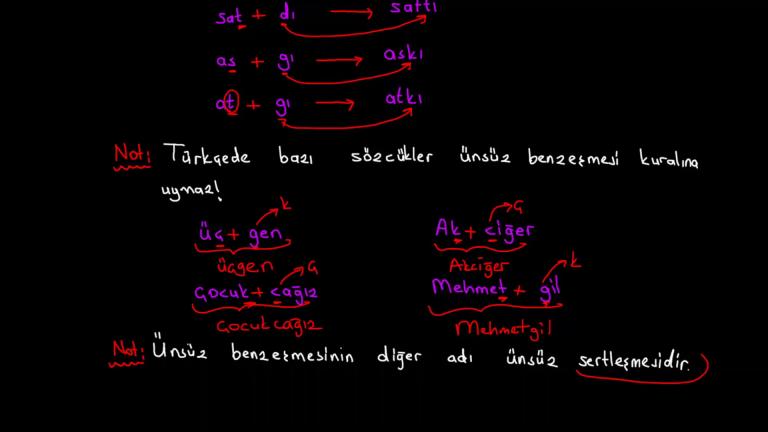 sat + dı → sattı
as + gı → askı
at + gı → atkı
Not: Türkçede bazı sözcükler ünsüz benzeşmesi kuralına
uymaz!
üç + gen k
üçgen
Ak + ciğer ç
Akciğer
Çocuk + cağız ç
Çocukcağız
Mehmet + gil k
Mehmetgil
Not: Ünsüz benzeşmesinin diğer adı ünsüz sertleşmesidir.